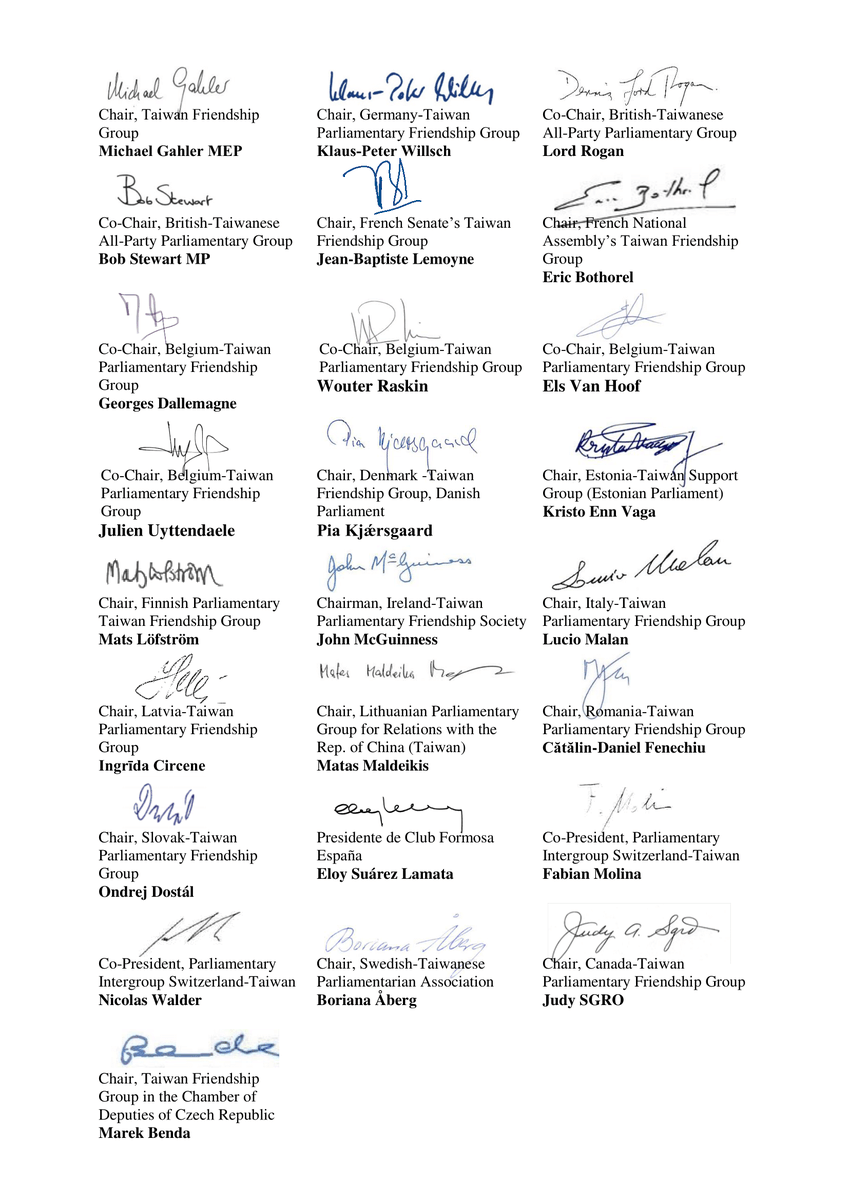 Michael Gahler
Chair, Taiwan Friendship
Group
Michael Gahler MEP
Klaus-Peter Willsch
Chair, Germany-Taiwan
Parliamentary Friendship Group
Klaus-Peter Willsch
Dennis Lord Rogan
Co-Chair, British-Taiwanese
All-Party Parliamentary Group
Lord Rogan
Bob Stewart
Co-Chair, British-Taiwanese
All-Party Parliamentary Group
Bob Stewart MP
Chair, French Senate’s Taiwan
Friendship Group
Jean-Baptiste Lemoyne
Eric Bothorel
Chair, French National
Assembly’s Taiwan Friendship
Group
Eric Bothorel
Co-Chair, Belgium-Taiwan
Parliamentary Friendship
Group
Georges Dallemagne
Co-Chair, Belgium-Taiwan
Parliamentary Friendship Group
Wouter Raskin
Co-Chair, Belgium-Taiwan
Parliamentary Friendship Group
Els Van Hoof
Co-Chair, Belgium-Taiwan
Parliamentary Friendship
Group
Julien Uyttendaele
Pia Kjaersgaard
Chair, Denmark -Taiwan
Friendship Group, Danish
Parliament
Pia Kjǽrsgaard
Chair, Estonia-Taiwan Support
Group (Estonian Parliament)
Kristo Enn Vaga
Mats Löfström
Chair, Finnish Parliamentary
Taiwan Friendship Group
Mats Löfström
John McGuinness
Chairman, Ireland-Taiwan
Parliamentary Friendship Society
John McGuinness
Lucio Malan
Chair, Italy-Taiwan
Parliamentary Friendship Group
Lucio Malan
Chair, Latvia-Taiwan
Parliamentary Friendship
Group
Ingrīda Circene
Matas Maldeikis
Chair, Lithuanian Parliamentary
Group for Relations with the
Rep. of China (Taiwan)
Matas Maldeikis
Chair, Romania-Taiwan
Parliamentary Friendship Group
Cătălin-Daniel Fenechiu
Chair, Slovak-Taiwan
Parliamentary Friendship
Group
Ondrej Dostál
Presidente de Club Formosa
España
Eloy Suárez Lamata
F. Moli
Co-President, Parliamentary
Intergroup Switzerland-Taiwan
Fabian Molina
Co-President, Parliamentary
Intergroup Switzerland-Taiwan
Nicolas Walder
Boriana Åberg
Chair, Swedish-Taiwanese
Parliamentarian Association
Boriana Åberg
Judy A. Sgro
Chair, Canada-Taiwan
Parliamentary Friendship Group
Judy SGRO
Chair, Taiwan Friendship
Group in the Chamber of
Deputies of Czech Republic
Marek Benda